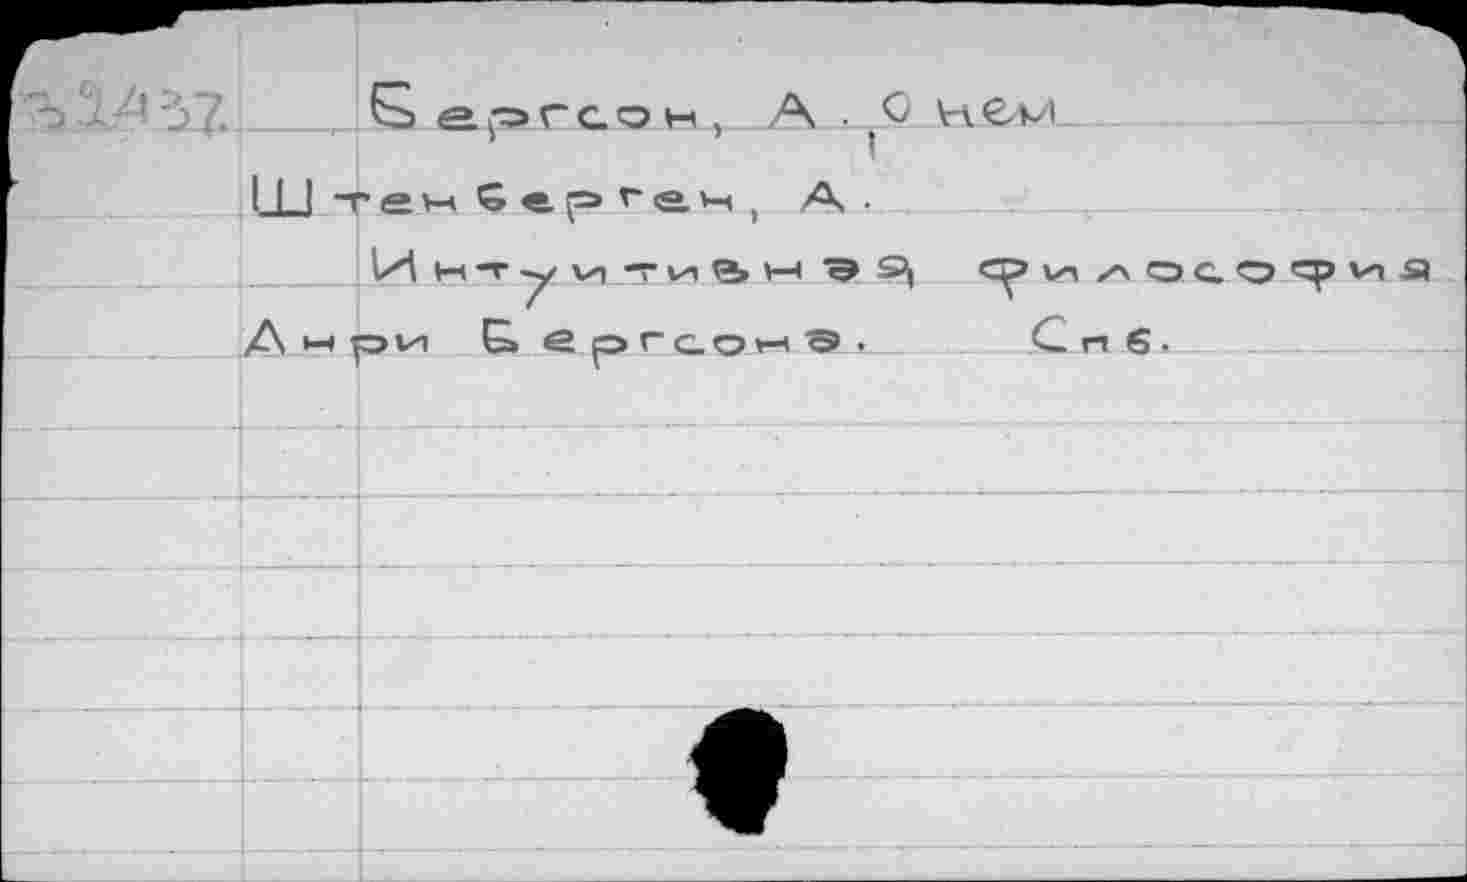 Бергсон, А. О нем
Штенберген, А.
Интуитивная философия
Анри Бергсона. Спб.